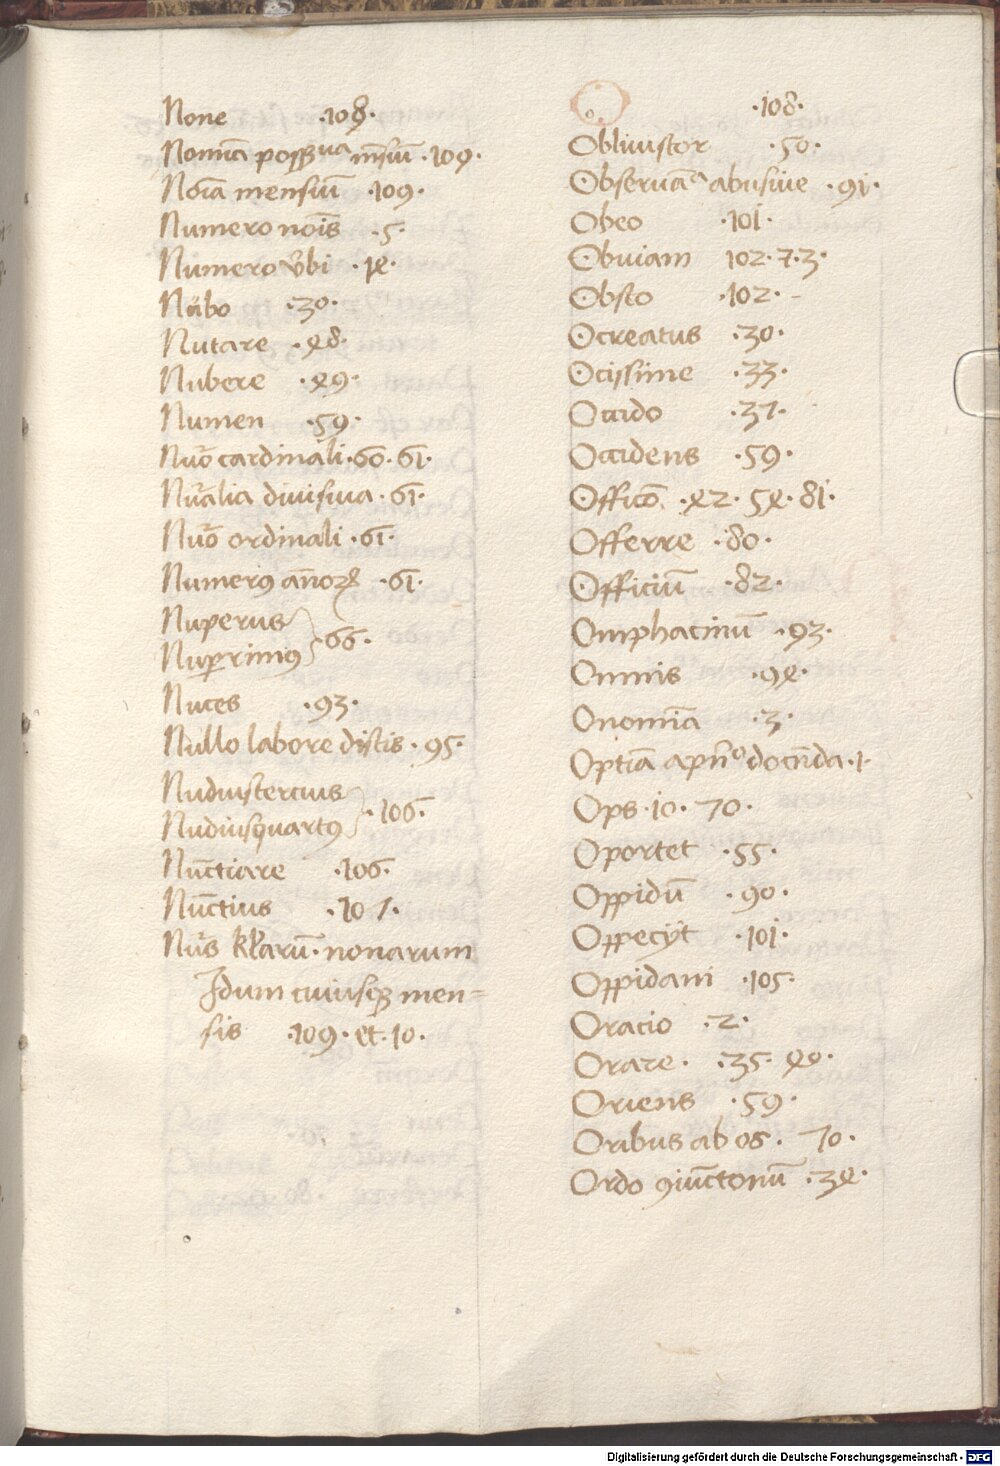 None ·108·
Nomīa possessiua mēsiū ·109·
Noīa mensiuꝫ ·109·
Numero noīs ·5·
Numero v̄bi ·14·
Nābo ·30·
Nutare ·48·
Nubere ·49·
Numen ·59·
Nuō cardinali ·60·61·
Nūalia diuisiua ·61·
Nuō ordinali ·61·
Numerꝰ ānoꝝ ·61·
Nuperus
Nuꝑrimꝰ ·66·
Nuces ·93·
Nullo labore discis ·95·
Nudiustercius
Nudiusquartꝰ ·106·
Nūctiare ·106·
Nūctius ·107·
Nūs kłarū· nonarum
Idum cuiusqꝫ men=
sis ·109· et ·10·
O ·108·
Obliuistor ·50·
Obseruāᵃ abusiue ·91·
Obeo ·101·
Obuiam 102·73·
Obsto ·102·
Ocreatus ·30·
Ocissime ·33·
Occido ·37·
Occidens ·59·
Officō ·42·54·81·
Offerre ·80·
Officiū ·82·
Omphacinū ·93·
Omnis ·94·
Onomīa ·3·
Optīa apn̄ᵒ docn̄da ·1·
Ops ·10·70·
Oportet ·55·
Oppidū ·90·
Oppecijt ·101·
Oppidani ·105·
Oracio ·2·
Orare· ·35·40·
Oriens ·59·
Oribus ab os· 70·
Ordo ꝯiūctonū ·34·
Digitalisierung gefördert durch die Deutsche Forschungsgemeinschaft · DFG